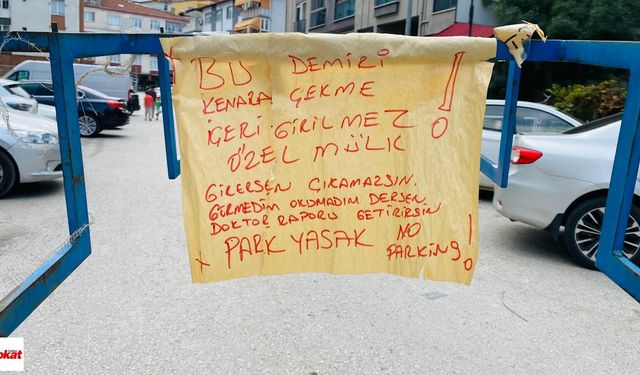 BU DEMİRİ
KENARA ÇEKME !
İÇERİ GİRİLMEZ
ÖZEL MÜLK
GİRERSEN ÇIKAMAZSIN.
GÖRMEDİM OKUMADIM DERSEN.
DOKTOR RAPORU GETİRİRSİN
PARK YASAK NO PARKING !
okat